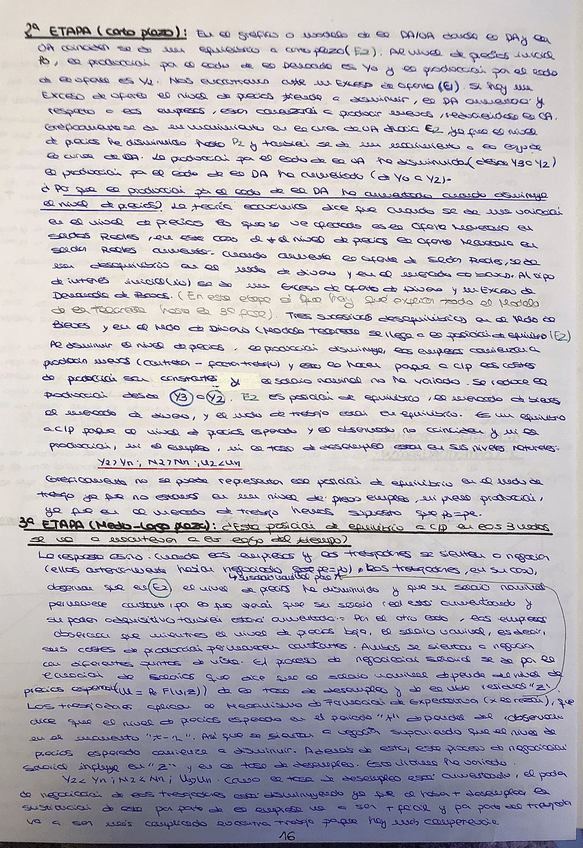 2ª ETAPA (corto plazo): En el gráfico o modelo de la DA/OA donde la DA y la
OA coinciden se da un equilibrio a corto plazo (E2). Al nivel de precios inicial
P0, la producción por el lado de la demanda es Y0 y la producción por el lado
de la oferta es Y3. Nos encontramos ante un Exceso de oferta (E1). Si hay un
Exceso de oferta el nivel de precios tiende a disminuir, la DA aumentará y
respecto a las empresas, estas comenzarán a producir menos, reduciéndose la OA.
Gráficamente se da un movimiento en la curva de OA hacia E2, ya que el nivel
de precios ha disminuido hasta P2 y también se da un movimiento a lo largo de
la curva de DA. La producción por el lado de la OA ha disminuido (desde Y3 a Y2)
la producción por el lado de la DA ha aumentado (de Y0 a Y2).
¿Por qué la producción por el lado de la DA ha aumentado cuando disminuye
el nivel de precios? La teoría económica dice que cuando se da una variación
en el nivel de precios lo que se ve afectado es la Oferta Monetaria en
Saldos Reales, en este caso el nivel de precios la Oferta Monetaria en
Saldos Reales aumenta. Cuando aumenta la oferta de Saldos Reales, se da
un desequilibrio en el mdo de dinero y en el mercado de bonos. Al tipo
de interés inicial (i0) se da un Exceso de oferta de Dinero y un Exceso de
Demanda de Bonos. (En esta etapa si que hay que explicar todo el Modelo
de la Telaraña hasta la 3ª fase). Tres sucesivos desequilibrios en el Mdo de
Bienes y en el Mdo de Dinero (Modelo Telaraña se llega a la posición de equilibrio (E2)
Al disminuir el nivel de precios, la producción disminuye, las empresas comienzan a
producir menos y esto lo hacen porque a c/p los costes
de producción son constantes y el salario nominal no ha variado. Se reduce la
producción desde Y3 a Y2. E2 es posición de equilibrio, el mercado de bienes
el mercado de dinero, y el mdo de trabajo están en equilibrio. Es un equilibrio
a c/p porque el nivel de precios esperado y el observado no coinciden y ni la
producción, ni el empleo, ni la tasa de desempleo están en sus niveles naturales:
Y2>Yn; N2>Nn; U2<Un
Gráficamente no se puede representar esa posición de equilibrio en el mdo de
trabajo ya que no estamos en un nivel de pleno empleo, ni pleno producción,
ya que en el mercado de trabajo hemos supuesto que P0=Pe.
3ª ETAPA (Medio-Largo plazo): ¿Esta posición de equilibrio a c/p en los 3 mdos
se va a mantener a lo largo del tiempo?
La respuesta es no: cuando las empresas y los trabajadores se sientan a negociar
(ellos anteriormente habían negociado P0=Pe), los trabajadores, en su caso,
observan que en E2 el nivel de precios ha disminuido y que su salario nominal
permanece constante, por lo que verán que su salario real está aumentando y
su poder adquisitivo también está aumentando. Por el otro lado, las empresas
observarán que mientras el nivel de precios baja, el salario nominal, es decir,
sus costes de producción permanecen constantes. Ambos se sientan a negociar
con diferentes puntos de vista. El proceso de negociación salarial se da por la
Ecuación de Salarios que dice que el salario nominal depende del nivel de
precios esperado (W = Pe F(u,z)) de la tasa de desempleo y de la vble residual "Z".
Los trabajadores aplican el Mecanismo de Formación de Expectativas, que
dice que el nivel de precios esperado en el periodo "t" depende del observado
en el momento "t-1". Así que se sientan a negociar suponiendo que el nivel de
precios esperado comience a disminuir. Además de esto, este proceso de negociación
salarial incluye en "Z" y en la tasa de desempleo. Esta última ha variado.
Y2<Yn; N2<Nn; U2>Un. Como la tasa de desempleo está aumentando, el poder
de negociación de los trabajadores está disminuyendo ya que al haber + desempleo la
sustitución de esto por parte de la empresa va a ser + fácil y por parte del trabajador
va a ser más complicado encontrar trabajo porque hay más competencia.
16